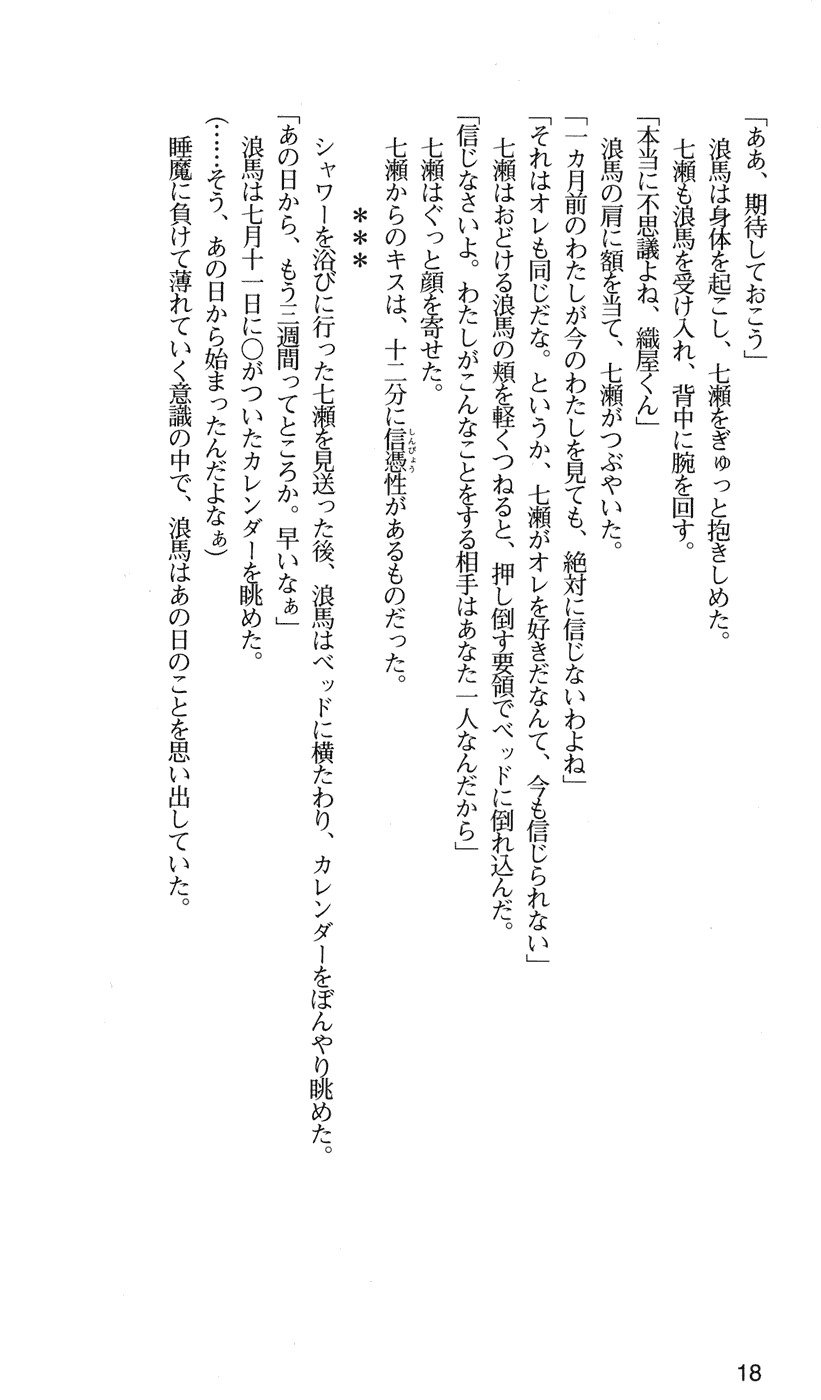 「ああ、期待しておこう」
浪馬は身体を起こし、七瀬をぎゅっと抱きしめた。
七瀬も浪馬を受け入れ、背中に腕を回す。
「本当に不思議よね、織屋くん」
浪馬の肩に額を当て、七瀬がつぶやいた。
「一カ月前のわたしが今のわたしを見ても、絶対に信じないわよね」
「それはオレも同じだな。というか、七瀬がオレを好きだなんて、今も信じられない」
七瀬はおどける浪馬の頬を軽くつねると、押し倒す要領でベッドに倒れ込んだ。
「信じなさいよ。わたしがこんなことをする相手はあなた一人なんだから」
七瀬はぐっと顔を寄せた。
七瀬からのキスは、十二分に信憑性があるものだった。
しんぴょう
＊＊＊
シャワーを浴びに行った七瀬を見送った後、浪馬はベッドに横たわり、カレンダーをぼんやり眺めた。
「あの日から、もう三週間ってところか。早いなぁ」
浪馬は七月十一日に〇がついたカレンダーを眺めた。
（……そう、あの日から始まったんだよなぁ）
睡魔に負けて薄れていく意識の中で、浪馬はあの日のことを思い出していた。
18